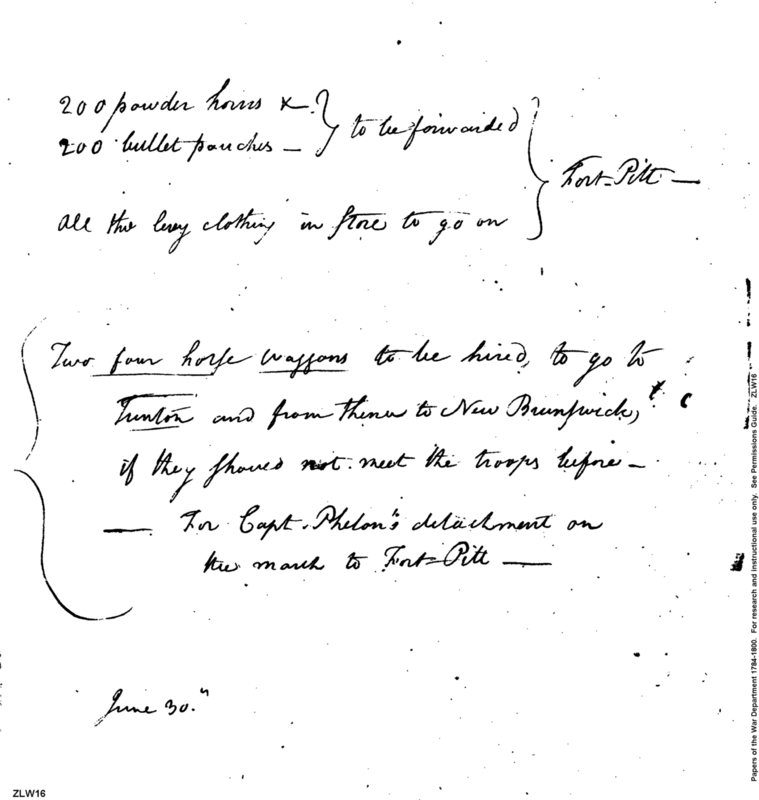 200 powder horns x.
200 bullet pouches —
to be forwarded
all the levy clothing in store to go on
Fort-Pitt —
Two four horse waggons to be hired, to go to
Trenton and from thence to New Brunswick,
if they should not meet the troops before —
— For Capt. Phelon's detachment on
the march to Fort-Pitt —
June 30."
ZLW16
Papers of the War Department 1784-1800. For research and instructional use only. See Permissions Guide. ZLW16